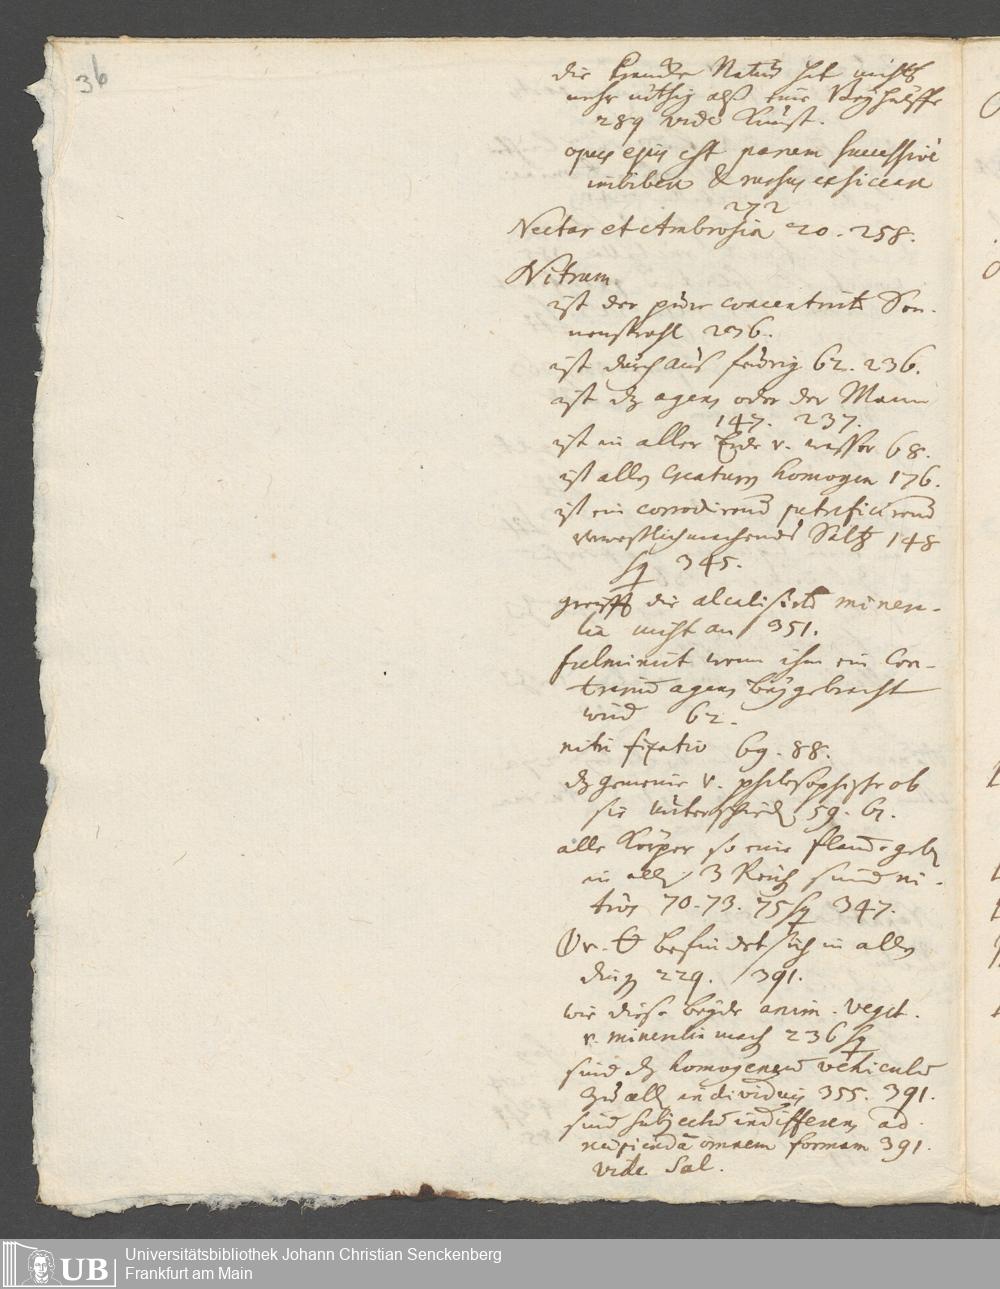 36
die krancke Natur hat nichts
mehr nöthig alß eine Beyhülffe
289 vide Kunst.
opus ejus est panem successive
imbibere & rursus exsiccare
272
Nectar et Ambrosia 20. 258.
Nitrum.
ist der pure concentrirte Son-
nenstrahl 236.
ist durchaus feurig 62. 236.
ist dz agens oder der Mann
147. 237.
ist in aller Erde v. wasser 68.
ist allen Creaturen homogen 176.
ist ein corrodirend putrificirend
verweßlichmachendes Saltz 148
sq 345.
greifft die alcalisirte minera-
lia nicht an 351.
fulminirt wenn ihm ein Con-
trarium agens beygebracht
wird 62.
nitri fixatio 69. 88.
dz gemeine v. philosophische ob
sie unterschieden 59. 61.
alle Körper so eine flamme geben
in allen 3 Reichen sind ni-
trös 70. 73. 75 sq 347.
befindet sich in allen
dingen 229. 391.
wie diese beyde anim. veget.
v. mineralia machen 236 sq
sind dz homogeneum vehiculum
zu allen individuis 355. 391.
sind subjectum indifferens ad
recipiendam omnem formam 391.
vide Sal.
UB
Universitätsbibliothek Johann Christian Senckenberg
Frankfurt am Main